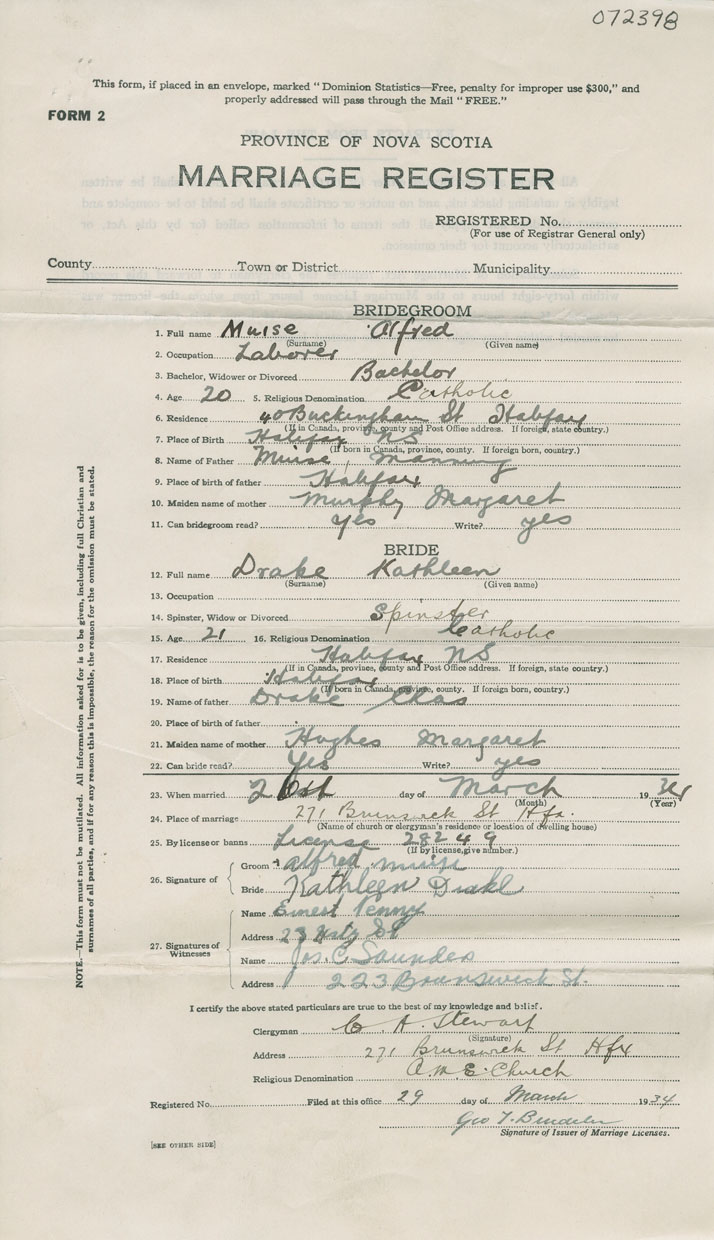 072398
This form, if placed in an envelope, marked "Dominion Statistics—Free, penalty for improper use $300," and
properly addressed will pass through the Mail "FREE."
FORM 2
PROVINCE OF NOVA SCOTIA
MARRIAGE REGISTER
REGISTERED No.
(For use of Registrar General only)
County Town or District Municipality
BRIDEGROOM
1. Full name Muise Alfred
(Surname) (Given name)
2. Occupation Laborer
3. Bachelor, Widower or Divorced Bachelor
4. Age 20 5. Religious Denomination Catholic
6. Residence 40 Buckingham St Halifax
(If in Canada, province, county and Post Office address. If foreign, state country.)
7. Place of Birth Halifax NS
(If born in Canada, province, county. If foreign born, country.)
8. Name of Father Muise Manning
9. Place of birth of father Halifax
10. Maiden name of mother Murphy Margaret
11. Can bridegroom read? yes Write? yes
BRIDE
12. Full name Drake Kathleen
(Surname) (Given name)
13. Occupation
14. Spinster, Widow or Divorced Spinster
15. Age 21 16. Religious Denomination Catholic
17. Residence Halifax NS
(If in Canada, province, county and Post Office address. If foreign, state country.)
18. Place of birth Halifax
(If born in Canada, province, county. If foreign born, country.)
19. Name of father Drake Chas
20. Place of birth of father
21. Maiden name of mother Hughes Margaret
22. Can bride read? Yes Write? yes
23. When married day of March 19 34
(Month) (Year)
24. Place of marriage 271 Brunswick St Hfx.
(Name of church or clergyman's residence or location of dwelling house)
25. By license or banns License 28249
(If by license, give number.)
26. Signature of
Groom Alfred Muise
Bride Kathleen Drake
27. Signatures of Witnesses
Name Ernest Penny
Address 23 St
Name Jos. C. Saunders
Address 223 Brunswick St.
I certify the above stated particulars are true to the best of my knowledge and belief.
Clergyman C. A. Stewart
(Signature)
Address 271 Brunswick St Hfx
Religious Denomination A.M.E. Church
Registered No. Filed at this office 29 day of March 19 34
Geo T.
Signature of Issuer of Marriage Licenses.
[SEE OTHER SIDE]
NOTE.—This form must not be mutilated. All information asked for is to be given, including full Christian and
surnames of all parties, and if for any reason this is impossible, the reason for the omission must be stated.